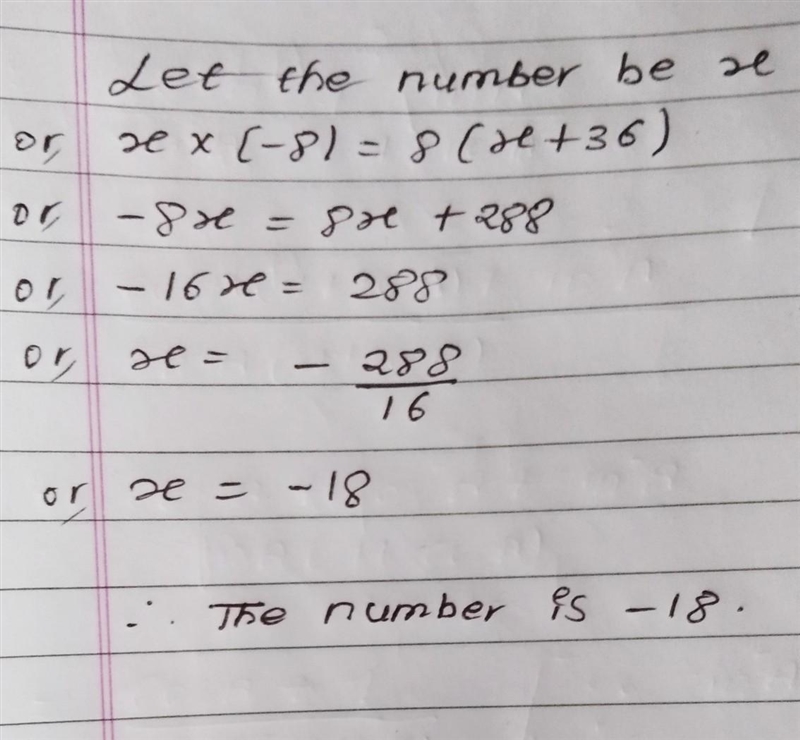 Let the number be x
or, x × (-8) = 8 (x + 36)
or, - 8x = 8x + 288
or, - 16x = 288
or, x = - 288/16
or, x = -18
∴ The number is -18.